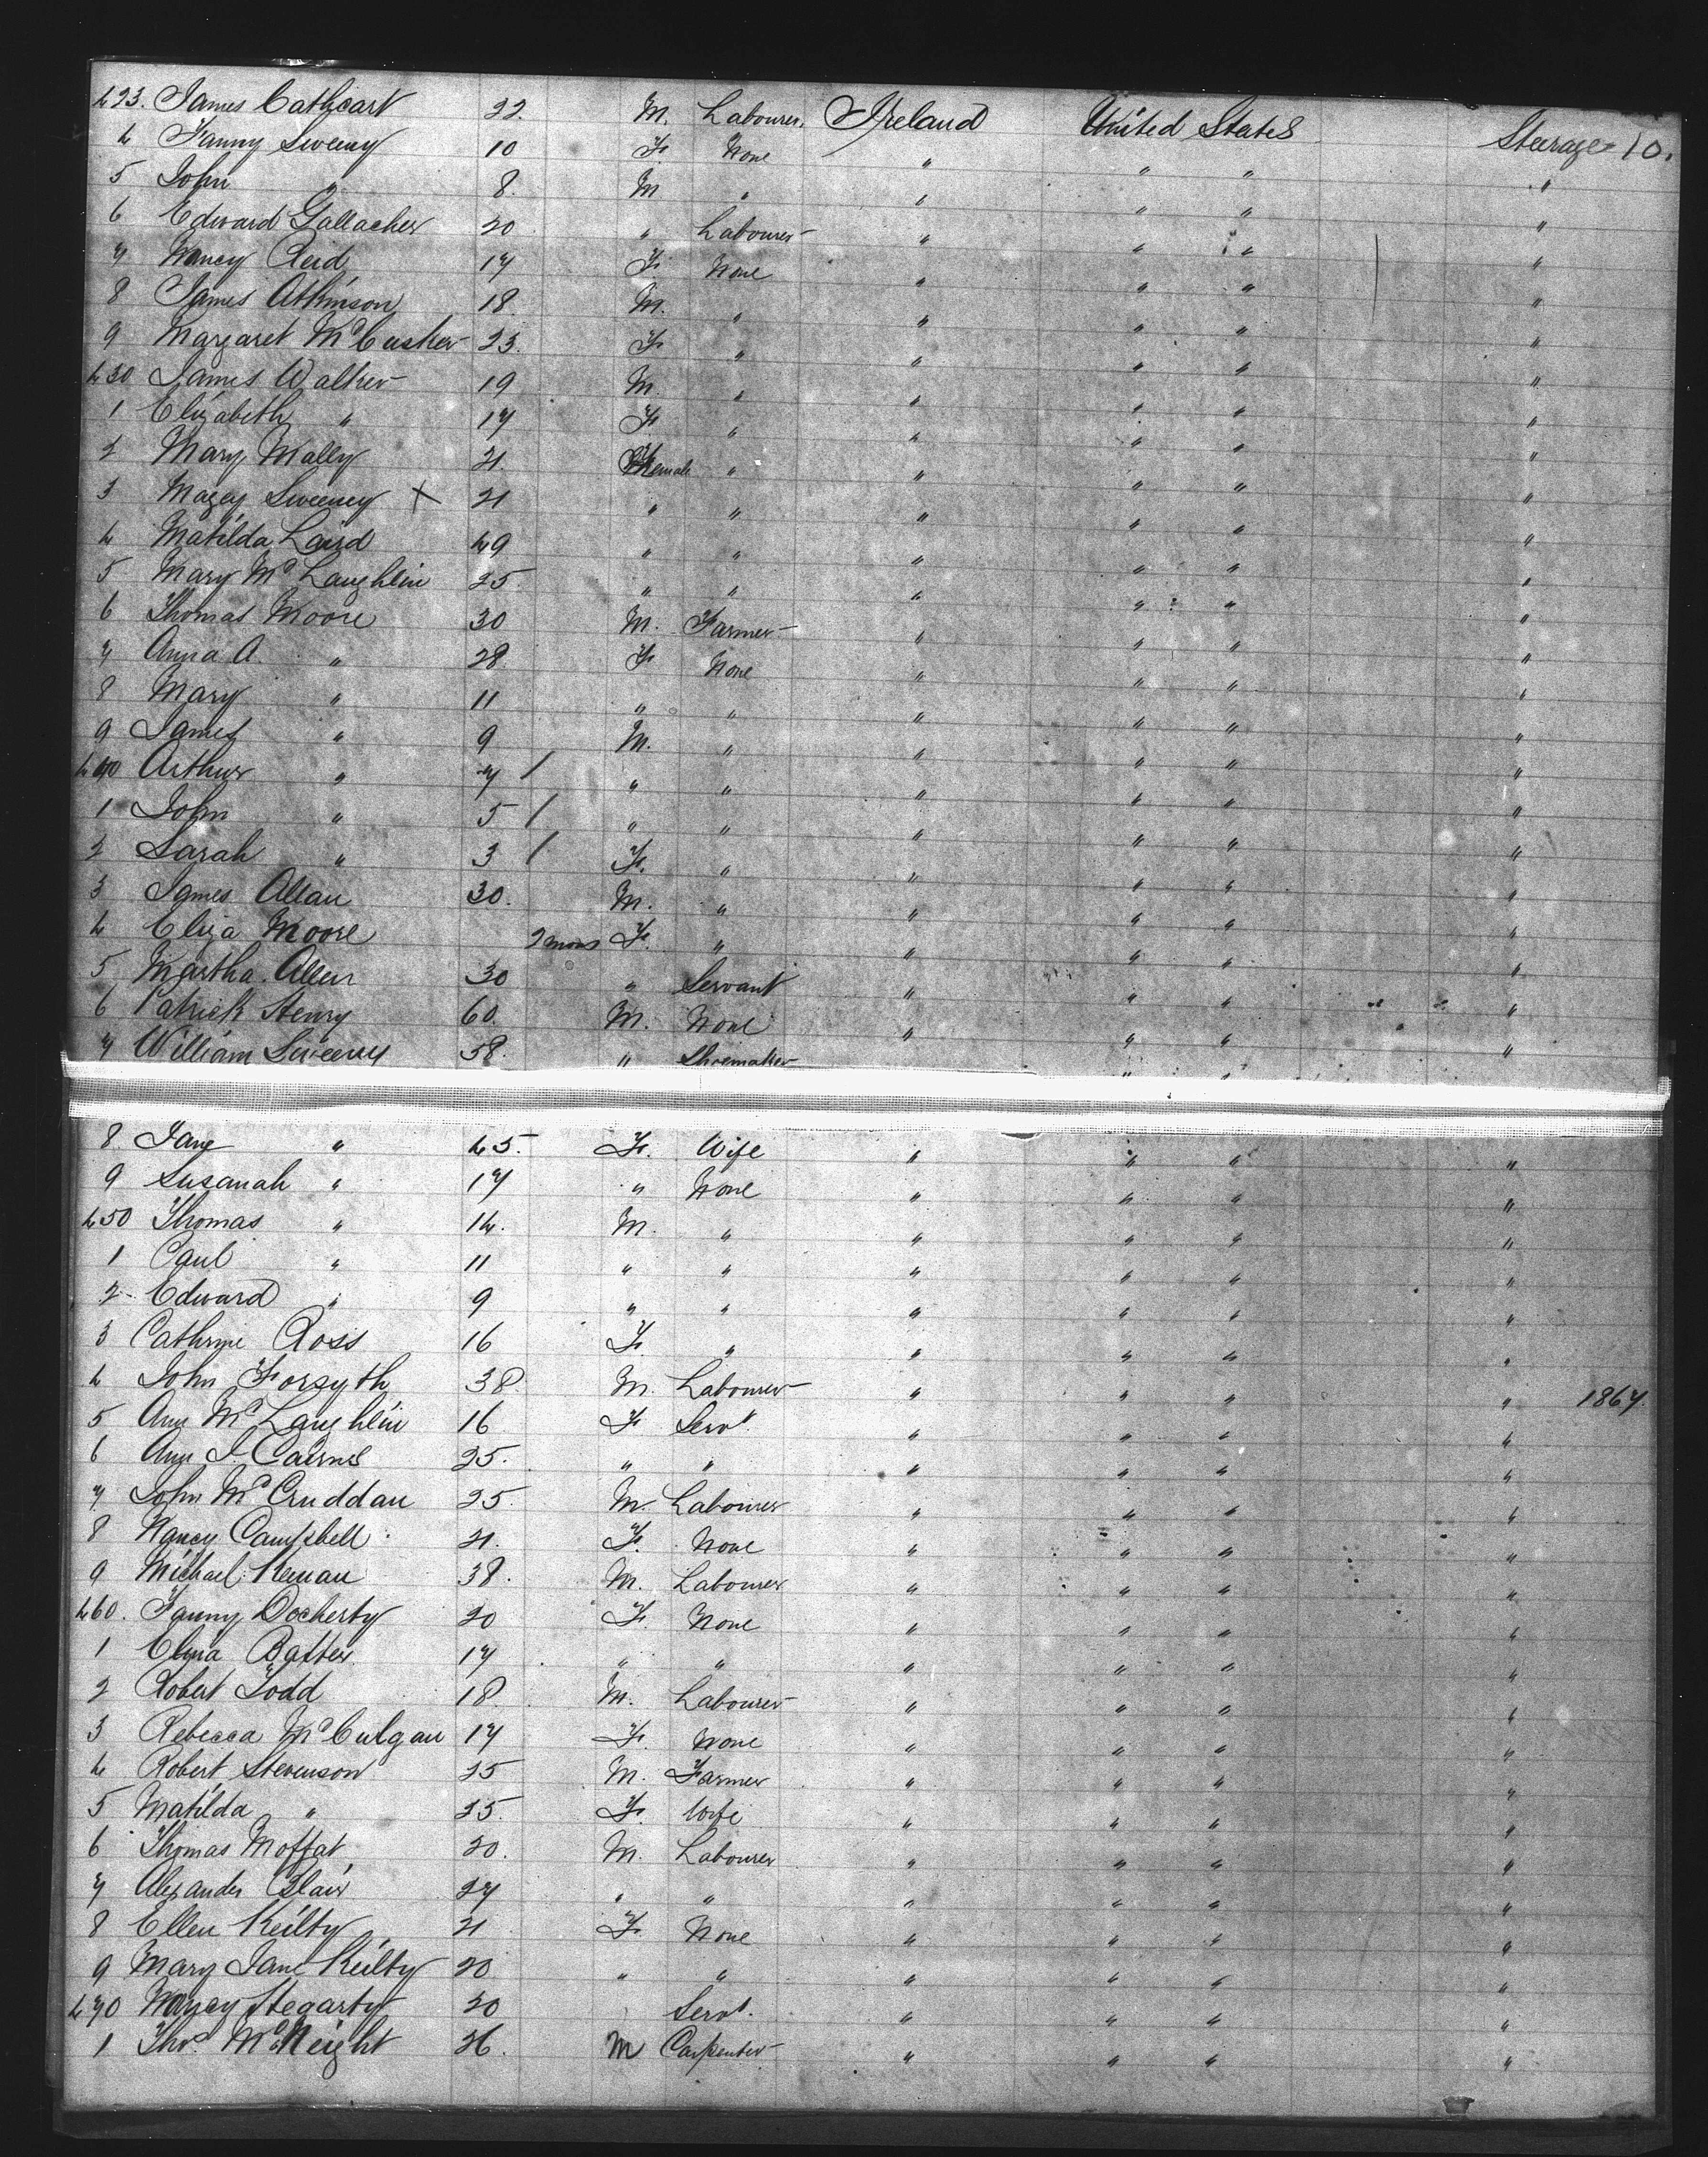 423. James Cathcart 22. M. Labourer, Ireland United States Steerage 10.
4 Fanny Sweeny 10 F. None " " " "
5 John " 8. M. " " " " "
6 Edward Gallacher 20 " Labourer " " " "
7 Nancy Reid 17 F. None " " " "
8 James Atkinson 18. M. " " " " "
9 Margaret McCusker 23. F " " " " "
430 James Walker 19 M. " " " " "
1 Elizabeth " 17 F. " " " " "
2 Mary Mally 21. Female " " " " "
3 Magey Sweeney X 21 " " " " " "
4 Matilda Laird 49 " " " " " "
5 Mary McLaughlin 25. " " " " " "
6 Thomas Moore 30 M. Farmer " " " "
7 Anna A. " 28. F. None " " " "
8 Mary " 11 " " " " " "
9 James " 9 M. " " " " "
440 Arthur " 7 / " " " " " "
1 John " 5 / " " " " " "
2 Sarah " 3 / F. " " " " "
3 James Allan 30. M. " " " " "
4 Eliza Moore 2 mons F. " " " " "
5 Martha Allen 30 " Servant " " " "
6 Patrick Henry 60. M. None " " " "
7 William Sweeny 58. " Shoemaker " "
8 Jane " 45. F. Wife " " " "
9 Susanah " 17 " None " " " "
450 Thomas " 14. M. " " " " "
1 Paul " 11 " " " " " "
2 Edward " 9 " " " " " "
3 Cathrine Ross 16 F. " " " " "
4 John Forsyth 38 M. Labourer " " " " 1867.
5 Ann McLaughlin 16 F Servt. " " " "
6 Ann J. Cairns 25. " " " " " "
7 John McCruddan 25. M. Labourer " " " "
8 Nancy Campbell 21. F. None " " " "
9 Michael Keenan 38. M. Labourer " " " "
460. Fanny Docherty 20 F. None " " " "
1 17 " " " " " "
2 Robert Todd 18 M. Labourer " " " "
3 Rebecca McCulgan 17 F. None " " " "
4 Robert Stevenson 25 M. Farmer " " " "
5 Matilda " 25. F. Wife " " " "
6 Thomas Moffat 20. M. Labourer " " " "
7 Alexander Blair 27 " " " " " "
8 Ellen Keilty 21 F. None " " " "
9 Mary Jane Keilty 20 " " " " " "
470 Nancy Hegarty 20 Servt. " " " "
1 Thos. McNeight 26. M Carpenter " " " "